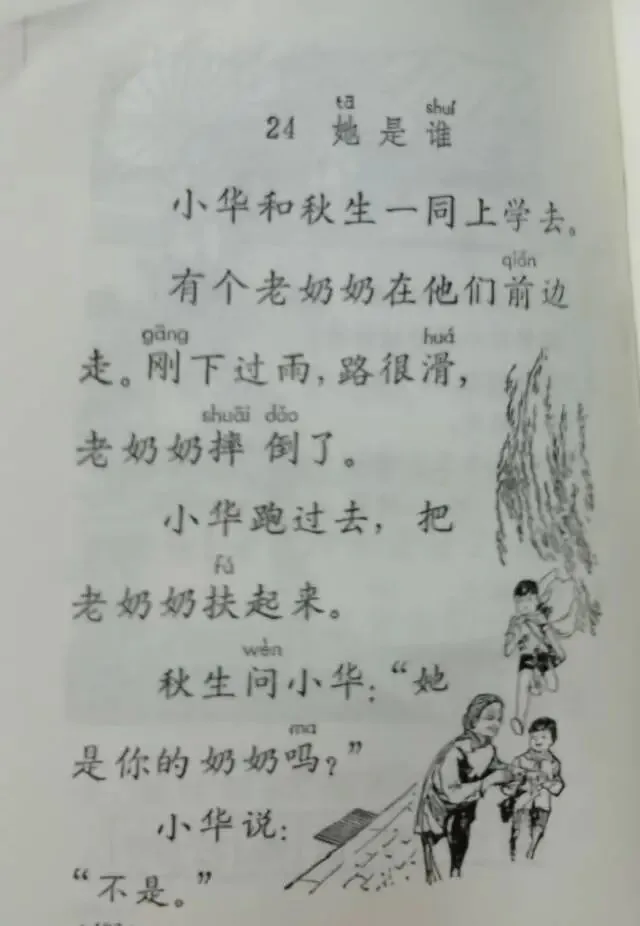 tā shuí
24 她是谁
小华和秋生一同上学去。
qián
有个老奶奶在他们前边
gāng huá
走。刚下过雨，路很滑，
shuāi dǎo
老奶奶摔倒了。
小华跑过去，把
fú
老奶奶扶起来。
wèn
秋生问小华：“她
ma
是你的奶奶吗？”
小华说：
“不是。”